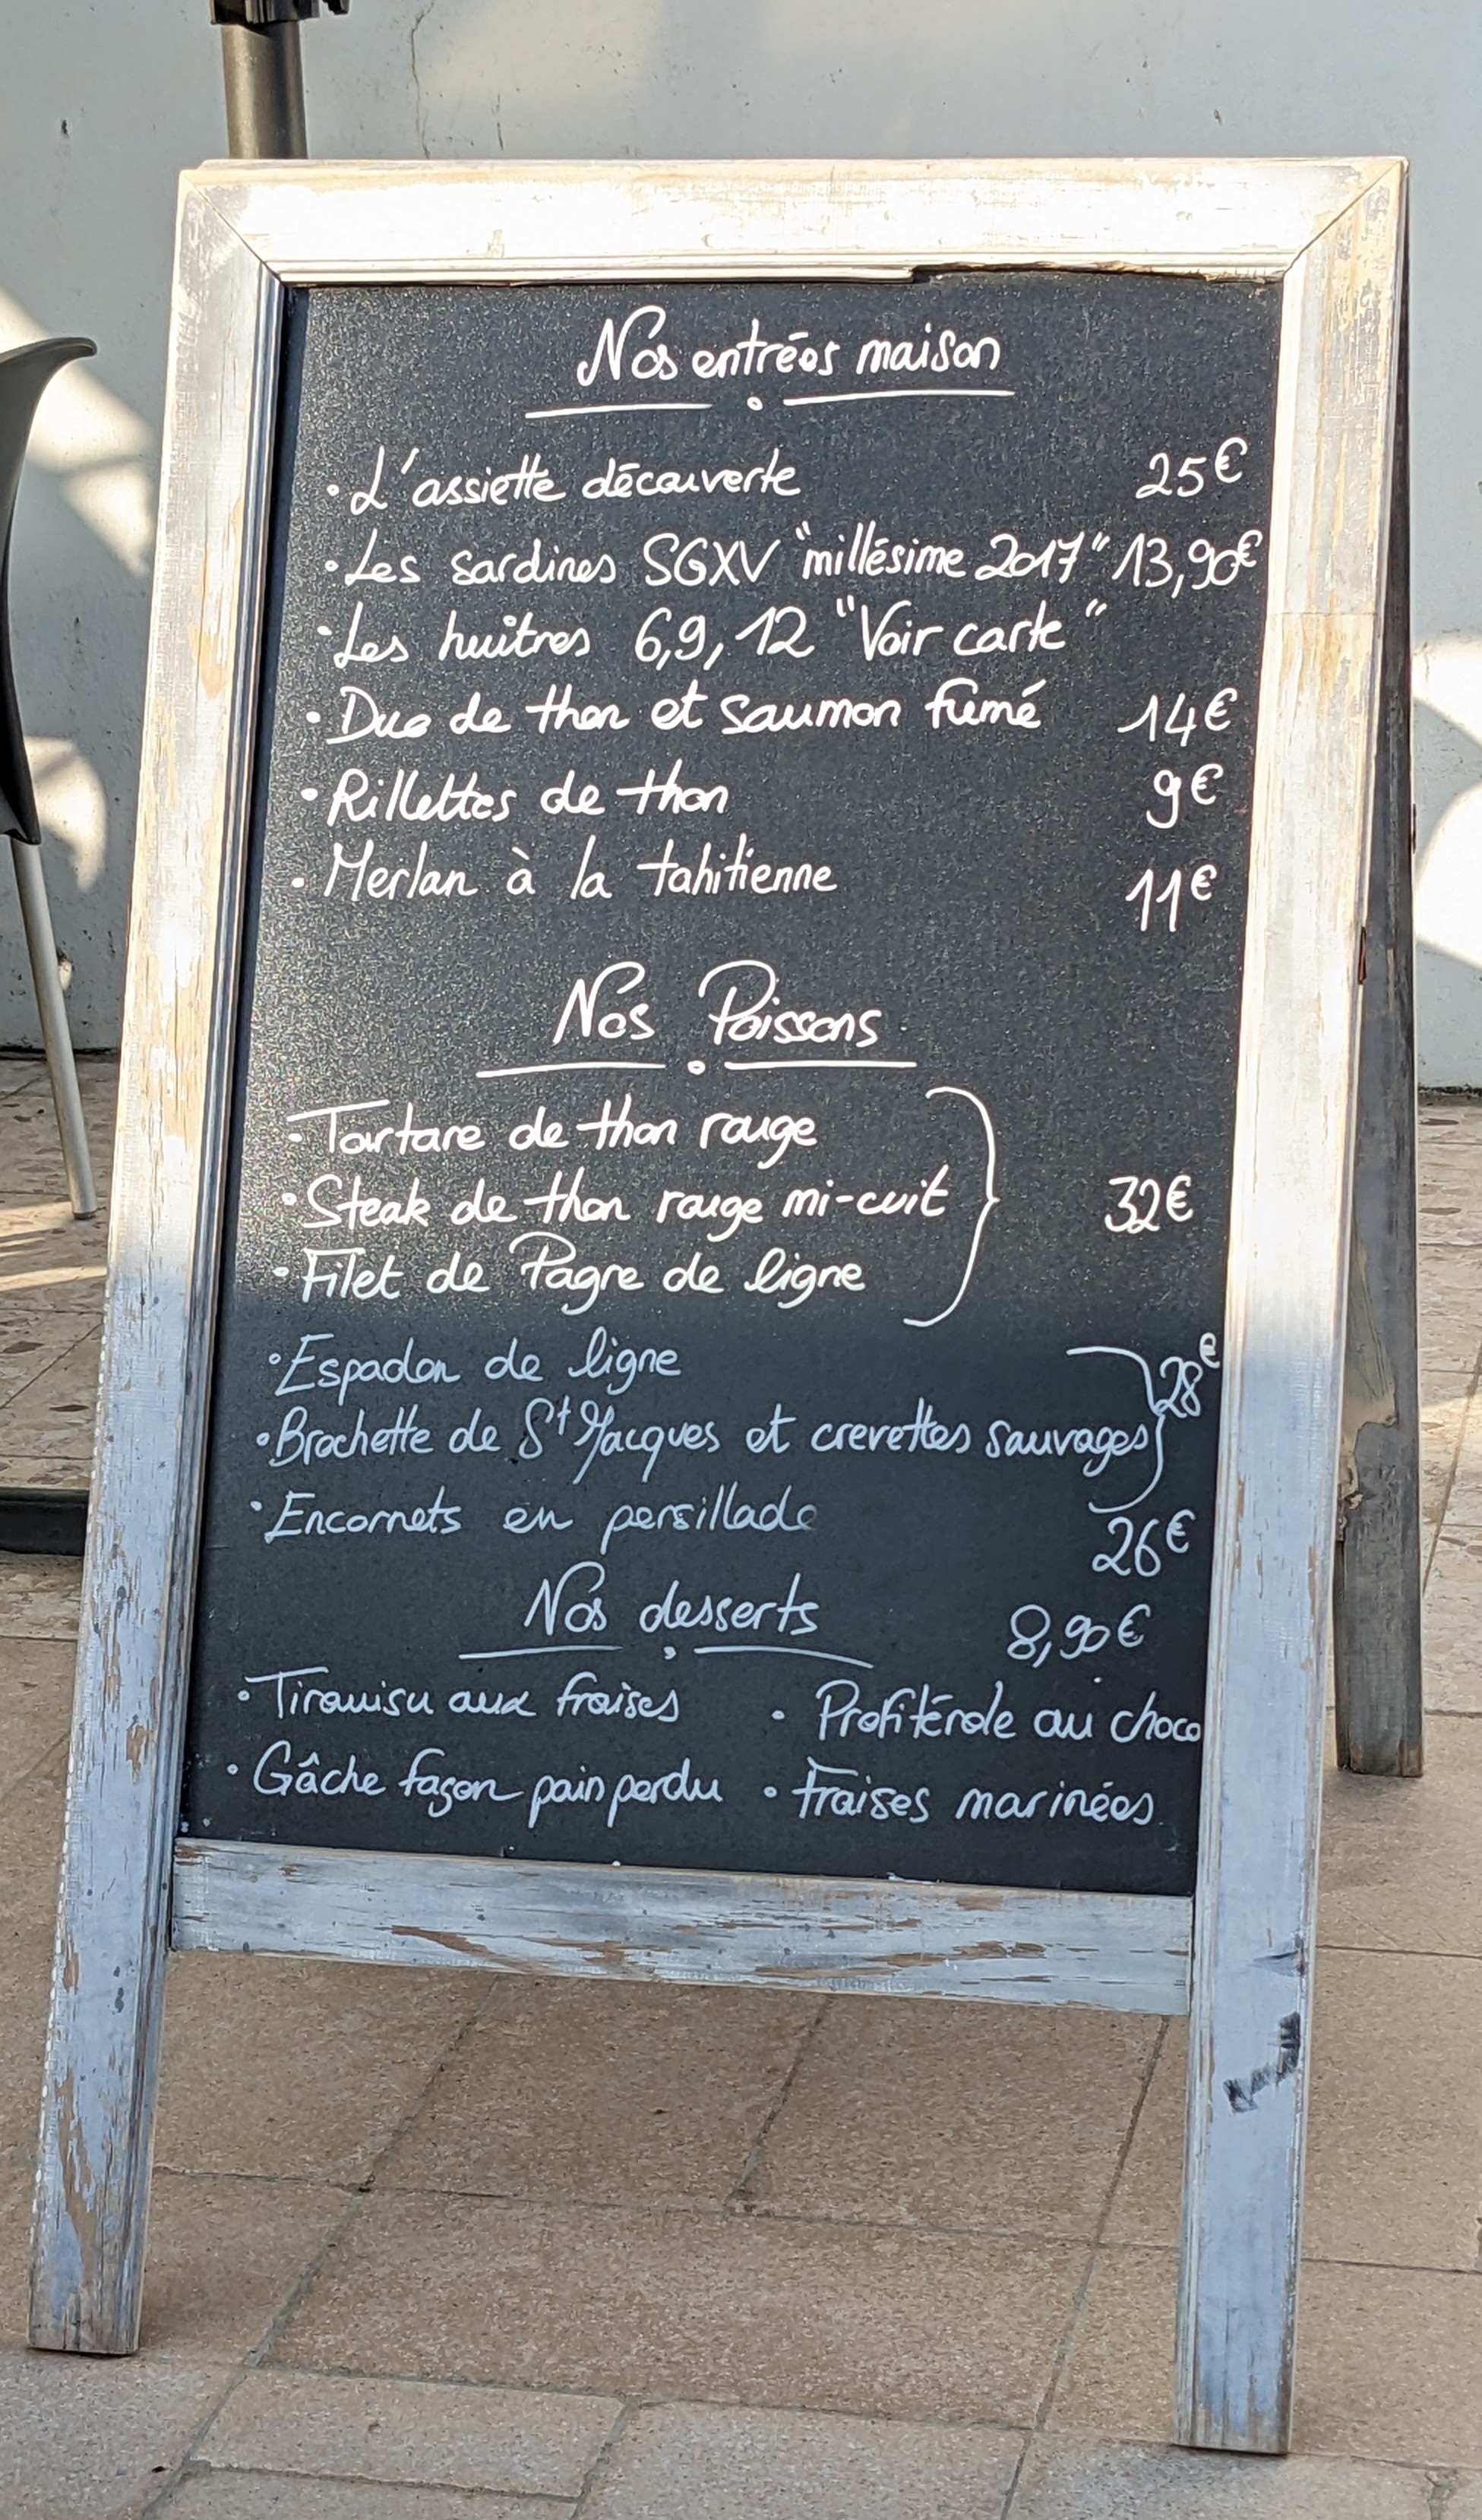 Nos entrées maison
· L'assiette découverte 25€
· Les sardines SGXV "millésime 2017" 13,90€
· Les huîtres 6,9,12 "Voir carte"
· Duo de thon et saumon fumé 14€
· Rillettes de thon 9€
· Merlan à la tahitienne 11€
Nos Poissons
· Tartare de thon rouge
· Steak de thon rouge mi-cuit 32€
· Filet de Pagre de ligne
· Espadon de ligne 28€
· Brochette de St Jacques et crevettes sauvages
· Encornets en persillade 26€
Nos desserts 8,90€
· Tiramisu aux fraises · Profitérole au choco
· Gâche façon pain perdu · Fraises marinées